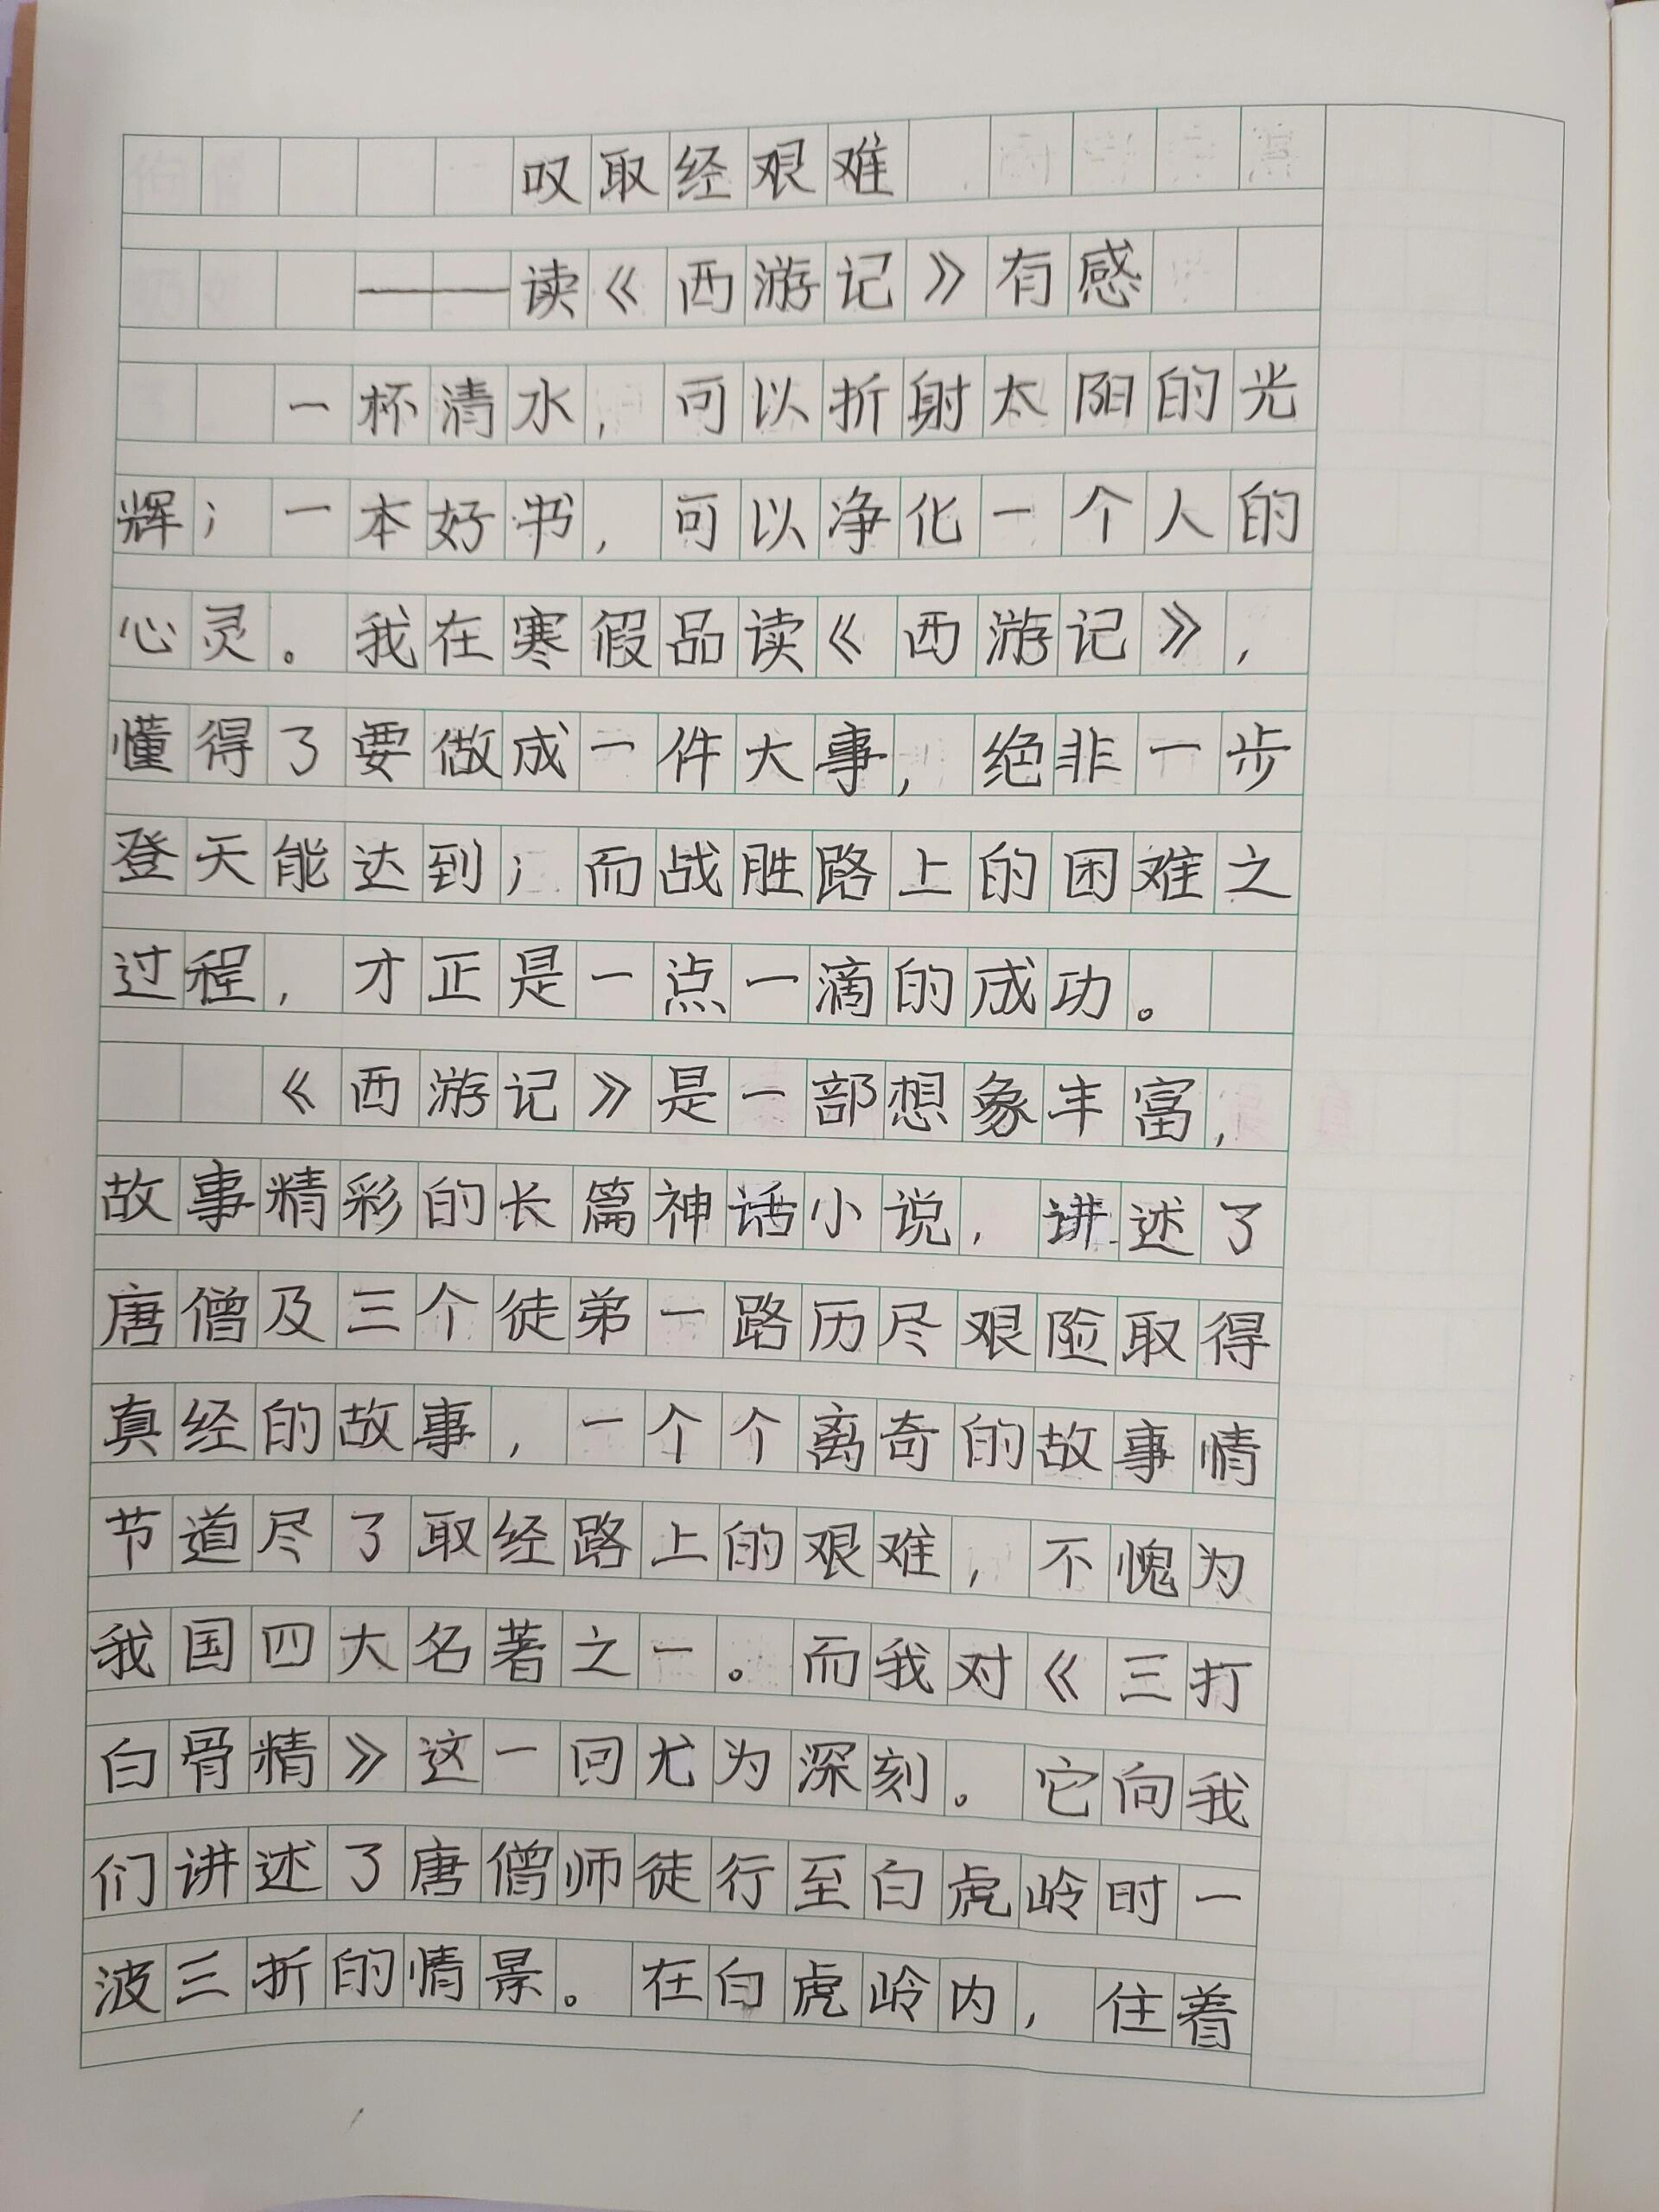 叹取经艰难
——读《西游记》有感
一杯清水，可以折射太阳的光
辉；一本好书，可以净化一个人的
心灵。我在寒假品读《西游记》，
懂得了要做成一件大事，绝非一步
登天能达到；而战胜路上的困难之
过程，才正是一点一滴的成功。
《西游记》是一部想象丰富，
故事精彩的长篇神话小说，讲述了
唐僧及三个徒弟一路历尽艰险取得
真经的故事，一个个离奇的故事情
节道尽了取经路上的艰难，不愧为
我国四大名著之一。而我对《三打
白骨精》这一回尤为深刻。它向我
们讲述了唐僧师徒行至白虎岭时一
波三折的情景。在白虎岭内，住着